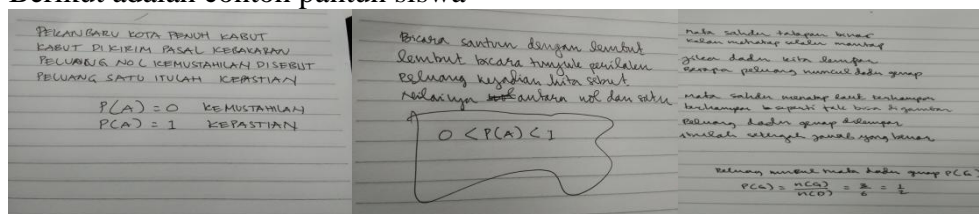 Berikut adalah contoh pantun siswa
PEKANBARU KOTA PENUH KABUT
KABUT DI KIRIM PASAL KEBAKARAN
PELUANG NOL KEMUSTAHILAN DISEBUT
PELUANG SATU ITULAH KEPASTIAN
P(A) = 0 KEMUSTAHILAN
P(A) = 1 KEPASTIAN
Bicara santun dengan lembut
lembut bicara tunjuk perilaku
Peluang kejadian kita sebut
Nilainya antara nol dan satu
0 < P(A) < 1
mata sahdu tatapan
kalau menatap selalu mantap
jika dadu kita lempar
berapa peluang muncul dadu genap
mata sahdu menatap laut terhampar
terhampar seperti tak bisa di gambar
Peluang dadu genap dilempar
adalah setengah jawab yang benar
Peluang muncul mata dadu genap P(G)
P(G) = n(G)/n(D) = 3/6 = 1/2